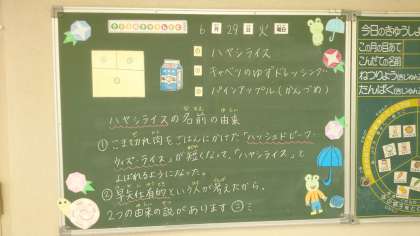 6月29日火曜日
ハヤシライス
キャベツのゆずドレッシング
パインアップル(かんづめ)
ハヤシライスの名前の由来
①こま切れ肉をごはんにかけた「ハッシュドビーフ・
ウィズ・ライス」が短くなって、「ハヤシライス」と
よばれるようになった。
②早矢仕有的という人が考えたから。
2つの由来の説があります
今日のきゅうしょ
この月の目あて
こんだての名前
ねつりょう
たんぱく